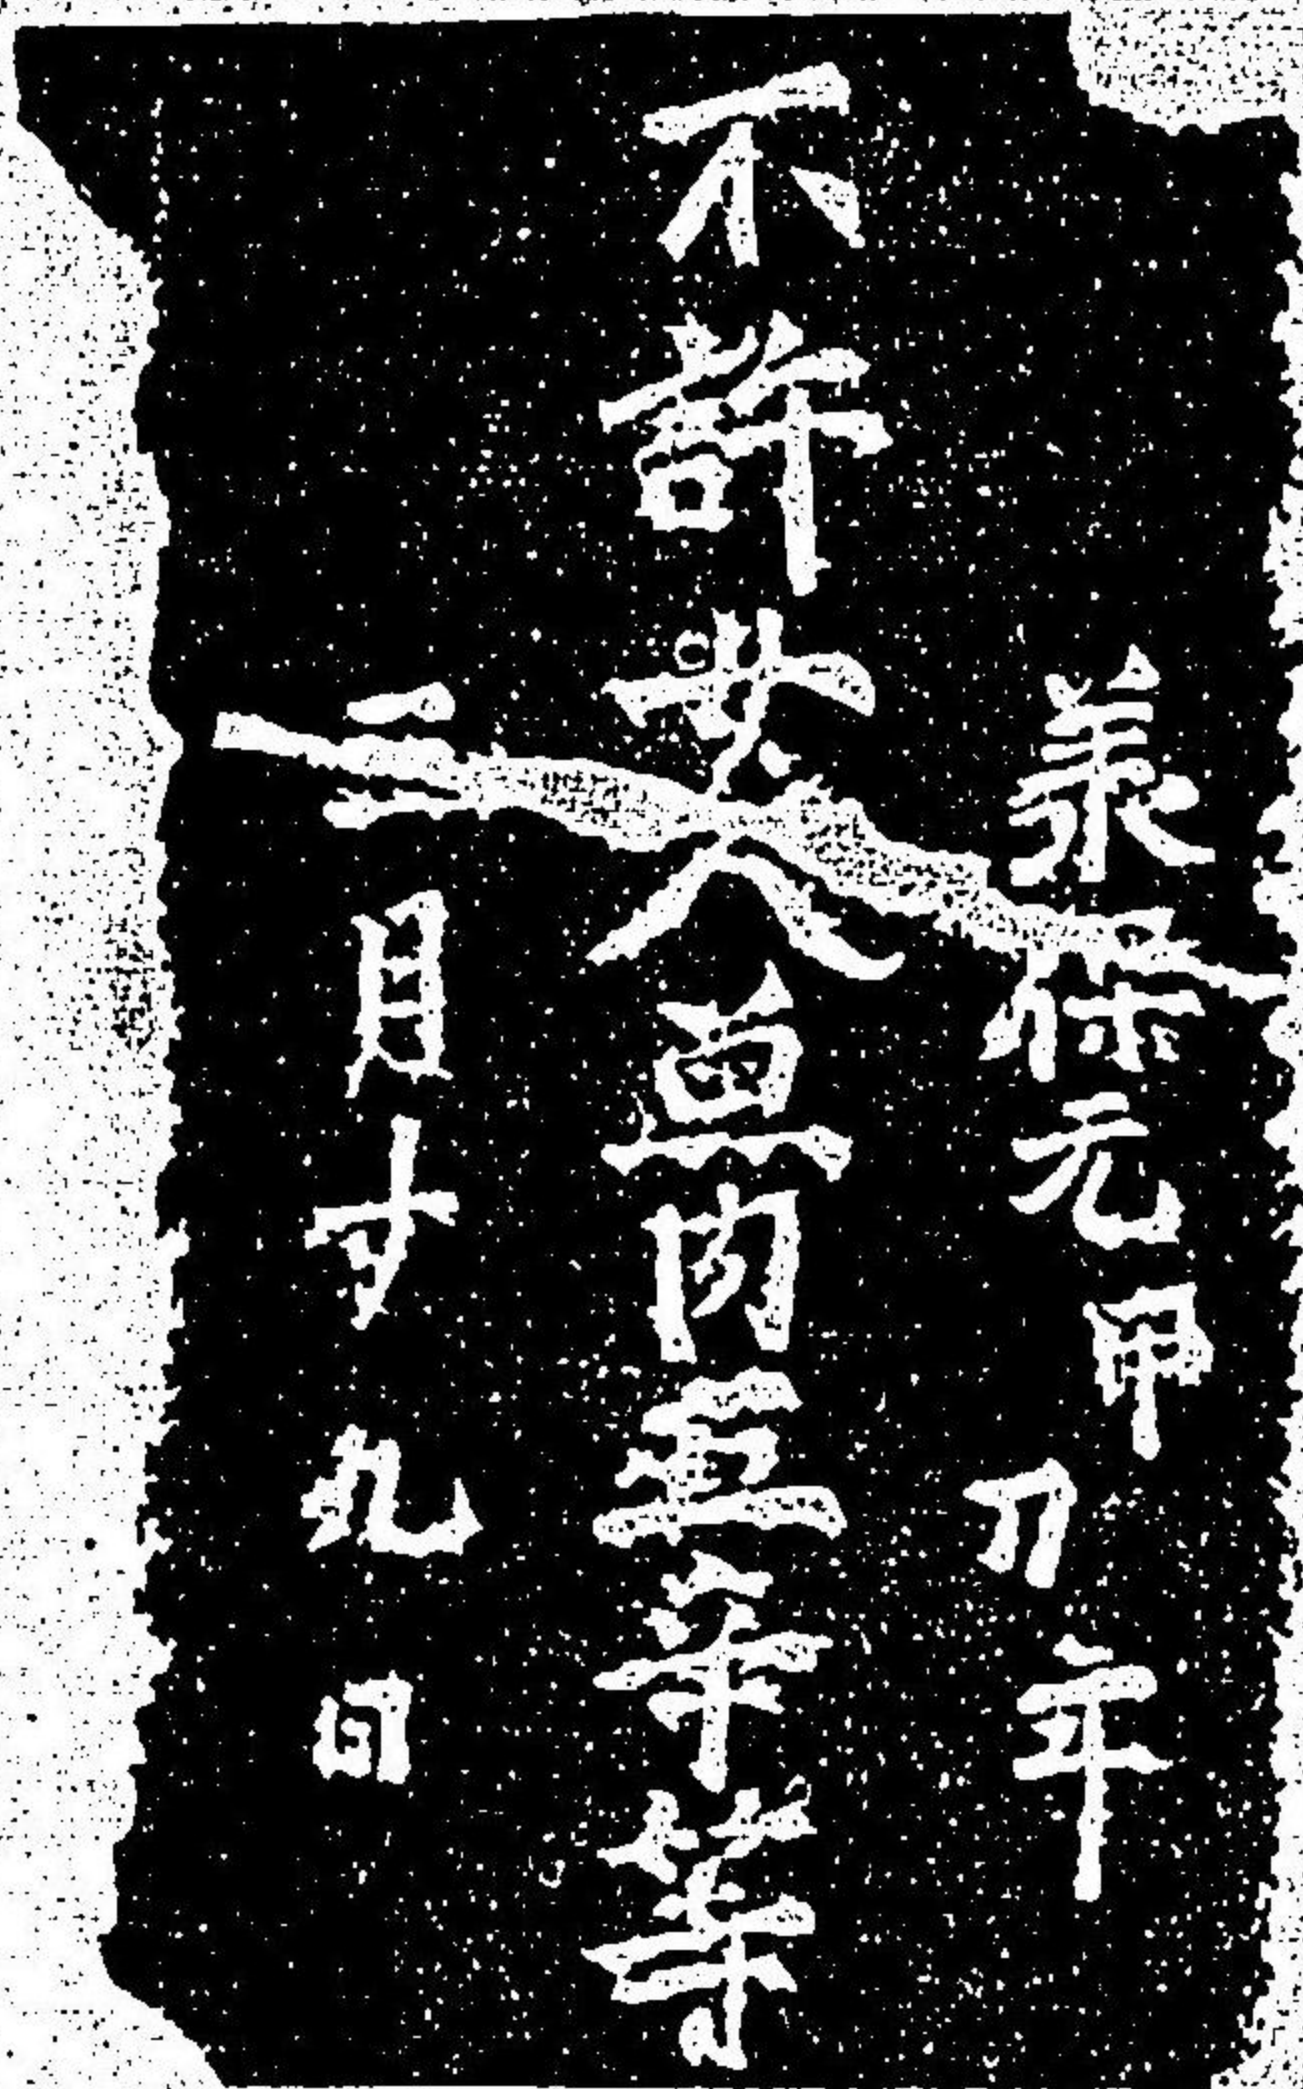 元甲刀年
不許女人魚肉五辛等
月十九日